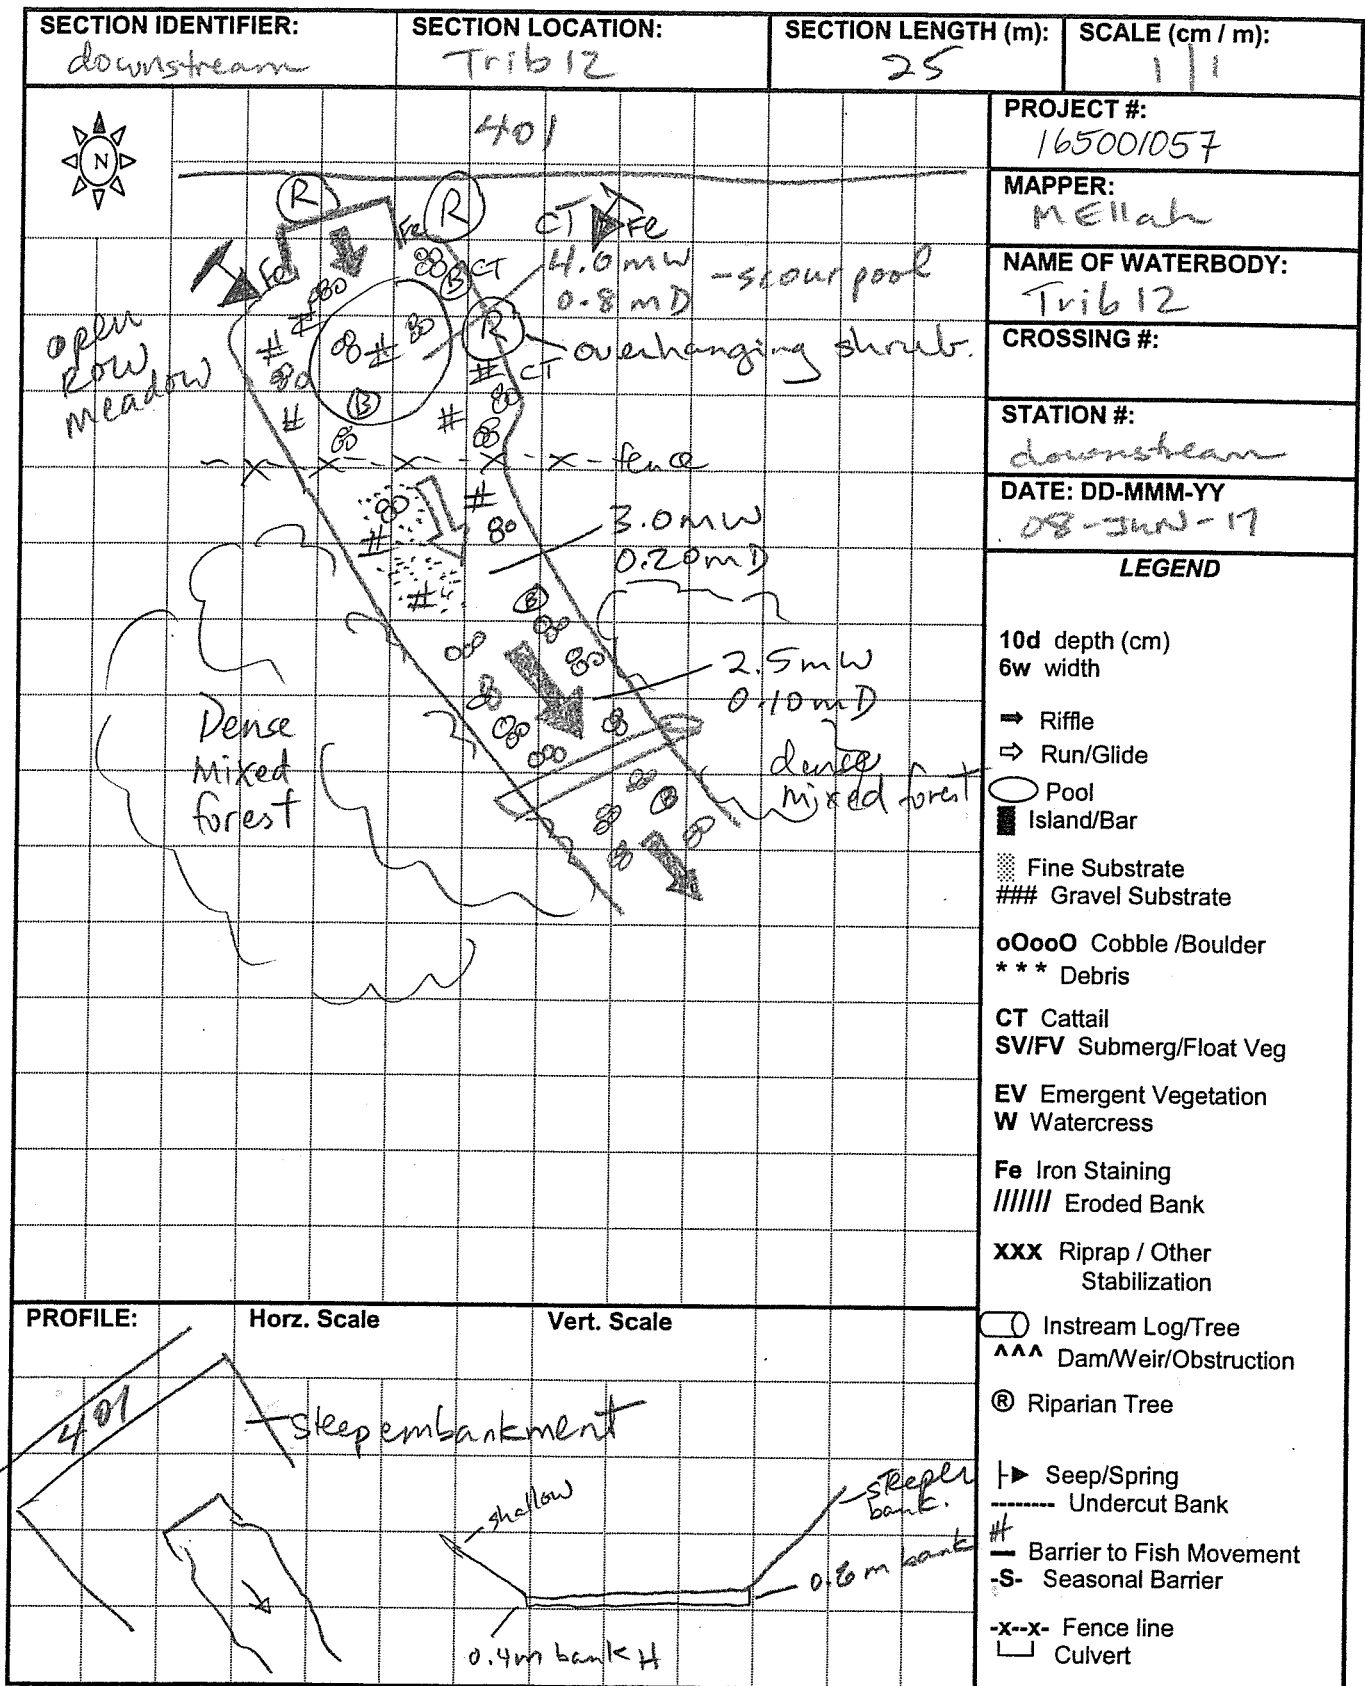 SECTION IDENTIFIER:
downstream
SECTION LOCATION:
Trib 12
SECTION LENGTH (m):
25
SCALE (cm / m):
1 | 1
PROJECT #:
165001057
MAPPER:
M Ellah
NAME OF WATERBODY:
Trib 12
CROSSING #:
STATION #:
downstream
DATE: DD-MMM-YY
08-JUN-17
N
401
R
R
Fe
CT
Fe
Fe
B
CT
4.0 mW
0.8 mD
- scour pool
R
overhanging shrub.
CT
B
open
ROW
meadow
- x - x - x - x - x - fence
3.0 mW
0.20 mD
B
2.5 mW
0.10 mD
Dense
Mixed
forest
dense
mixed forest
B
LEGEND
10d depth (cm)
6w width
Riffle
Run/Glide
Pool
Island/Bar
Fine Substrate
### Gravel Substrate
oOooO Cobble /Boulder
* * * Debris
CT Cattail
SV/FV Submerg/Float Veg
EV Emergent Vegetation
W Watercress
Fe Iron Staining
/////// Eroded Bank
XXX Riprap / Other
Stabilization
Instream Log/Tree
^^^ Dam/Weir/Obstruction
® Riparian Tree
Seep/Spring
-------- Undercut Bank
Barrier to Fish Movement
-S- Seasonal Barrier
-x--x- Fence line
Culvert
PROFILE:
Horz. Scale
Vert. Scale
401
steep embankment
shallow
steeper
bank.
0.4m bank H